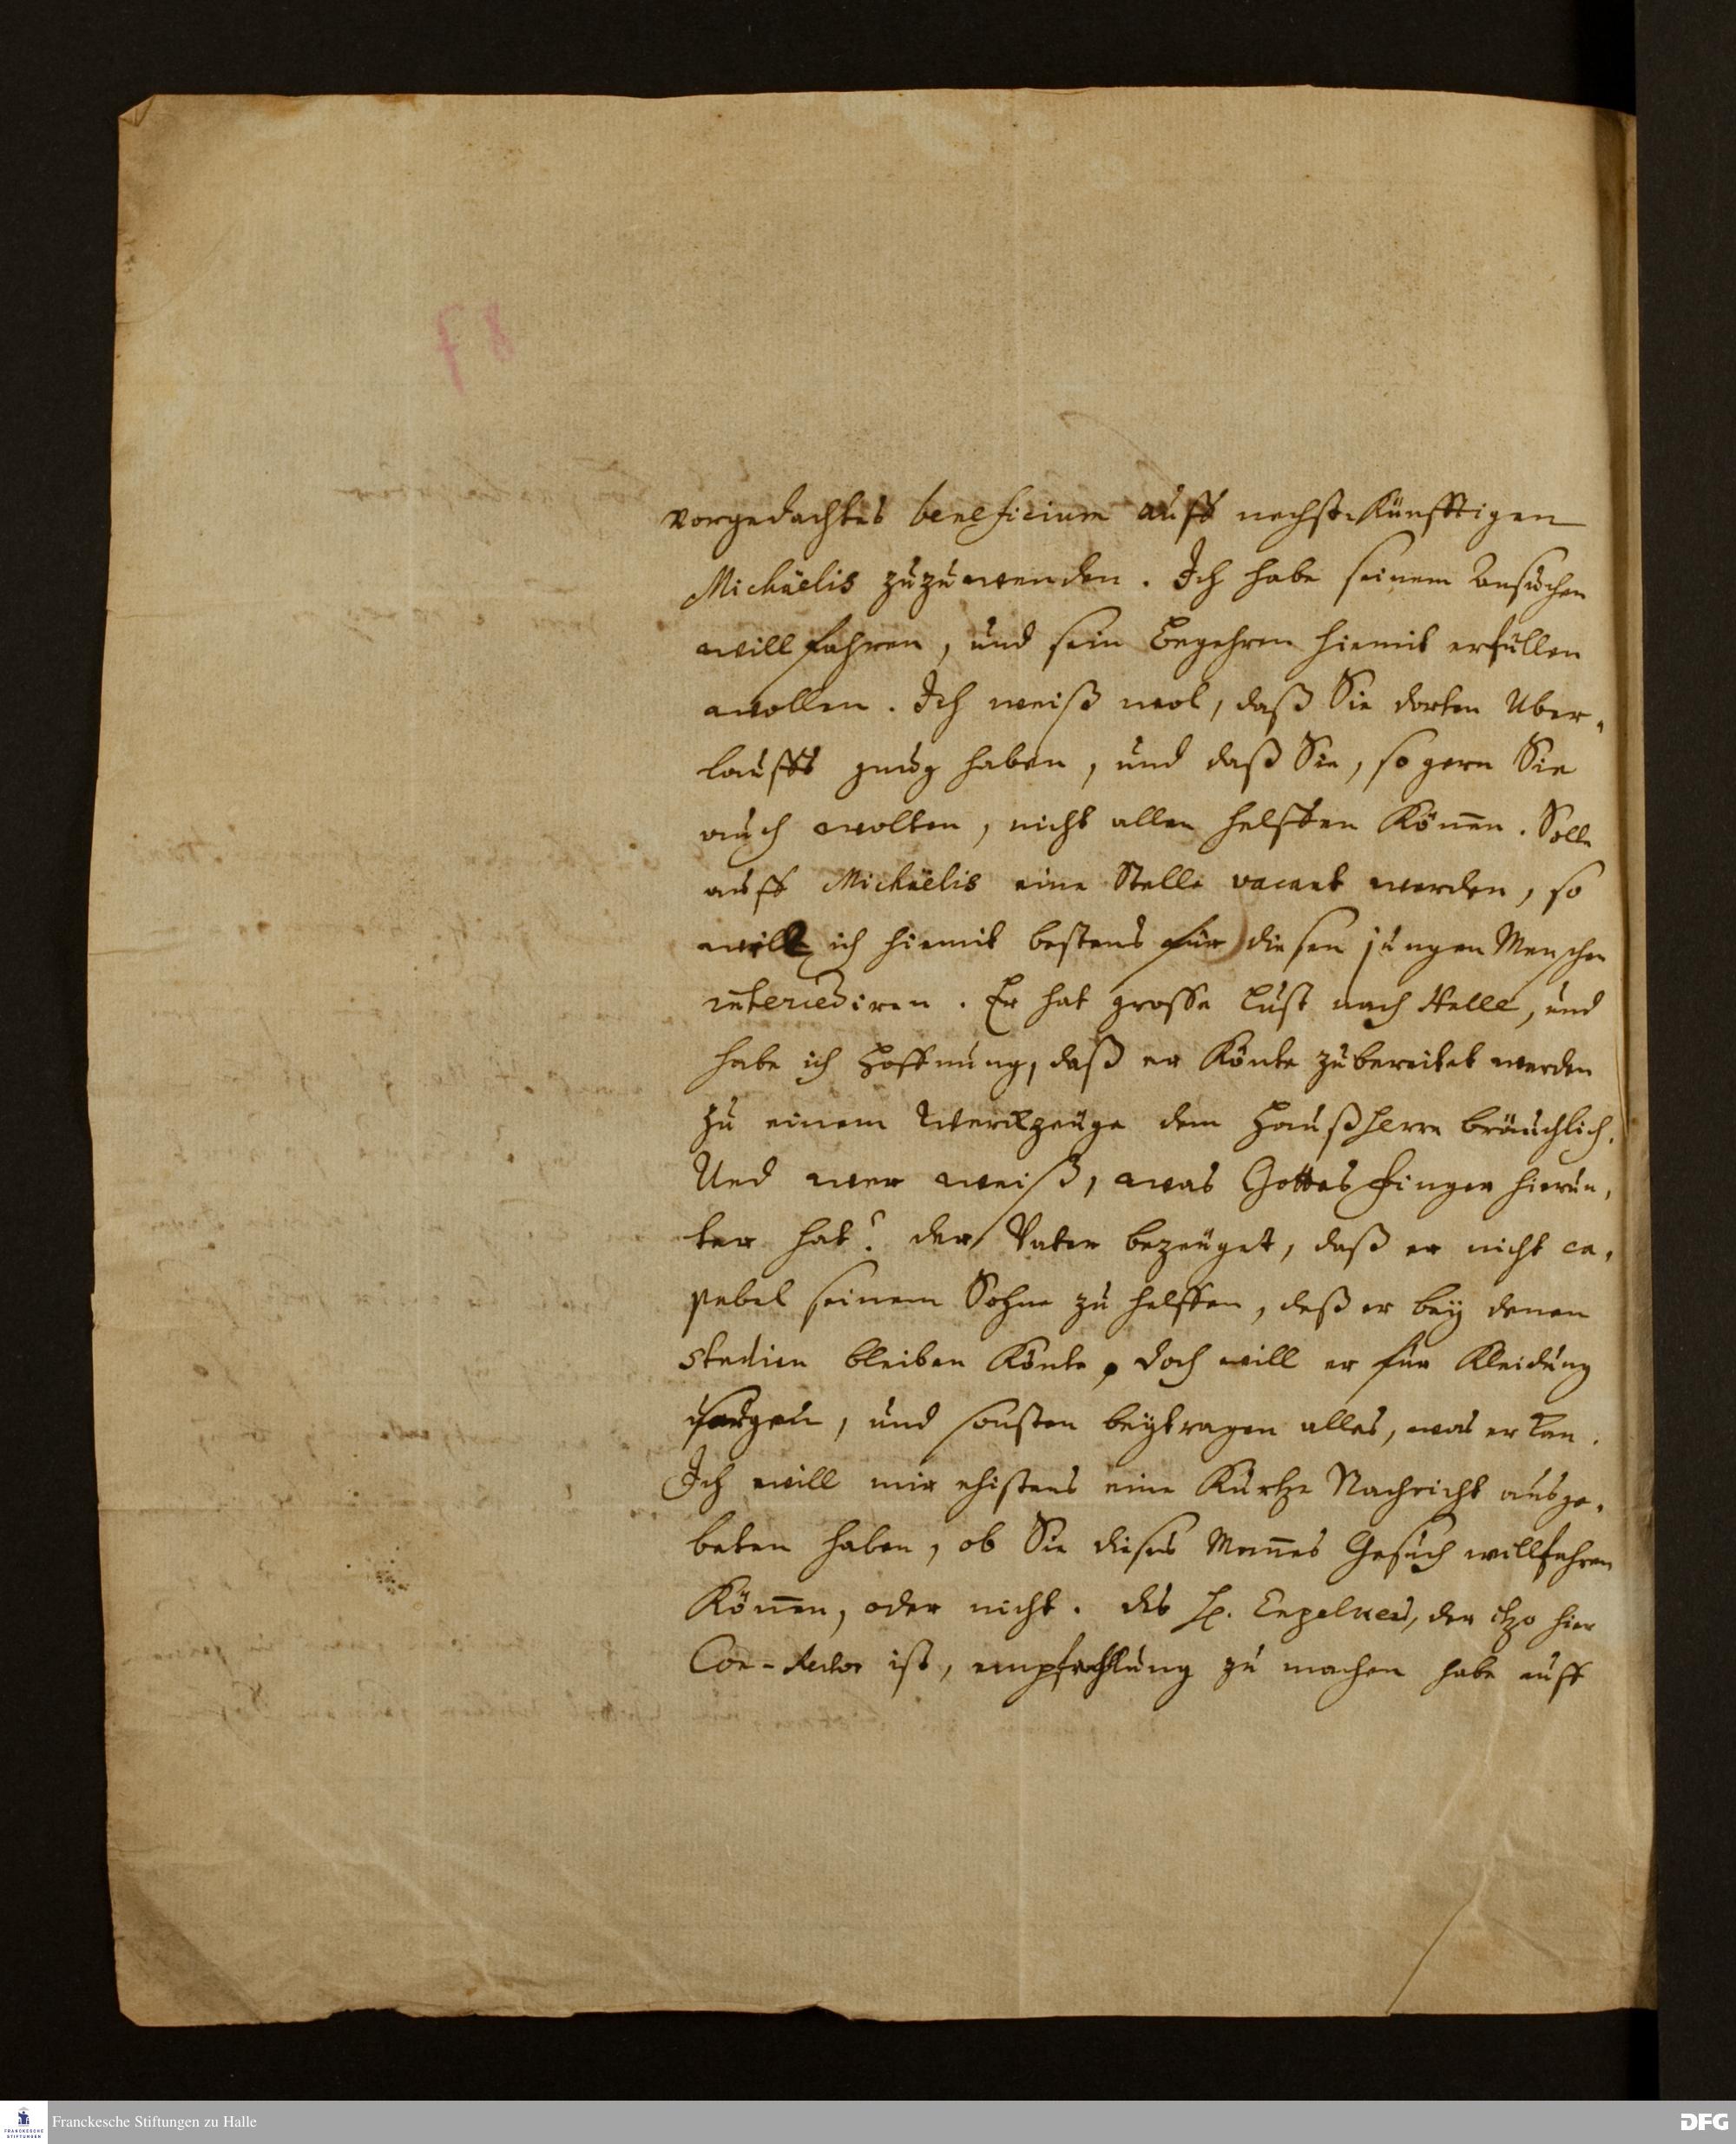 f 8
vorgedachtes beneficium auff nechst-künfftigen
Michaëlis zuzuwenden. Ich habe seinem Ansuchen
willfahren, und sein Begehren hiemit erfüllen
wollen. Ich weiß wol, daß Sie dorten Uber-
lauffs gnug haben, und daß Sie, so gern Sie
auch wolten, nicht allen helffen können. Solle
auff Michaëlis eine Stelle vacant werden, so
will ich hiemit bestens für diesen jungen Menschen
intercediren. Er hat grosse Lust nach Halle, und
habe ich Hoffnung, daß er könte zubereitet werden
zu einem Werckzeuge dem Haußherrn bräuchlich.
Und wer weiß, was Gottes Finger hierun-
ter hat? der Vater bezeuget, daß er nicht ca-
pabel seinem Sohne zu helffen, daß er bey denen
Studien bleiben könte, doch will er für Kleidung
sorgen, und sonsten beytragen alles, was er kan.
Ich will mir ehistens eine kurtze Nachricht ausge-
beten haben, ob Sie dieses Mannes Gesuch willfahren
können, oder nicht. des H. der itzo hier
Con-Rector ist, empfehlung zu machen habe auff
Franckesche Stiftungen zu Halle
FRANCKESCHE
STIFTUNGEN
DFG